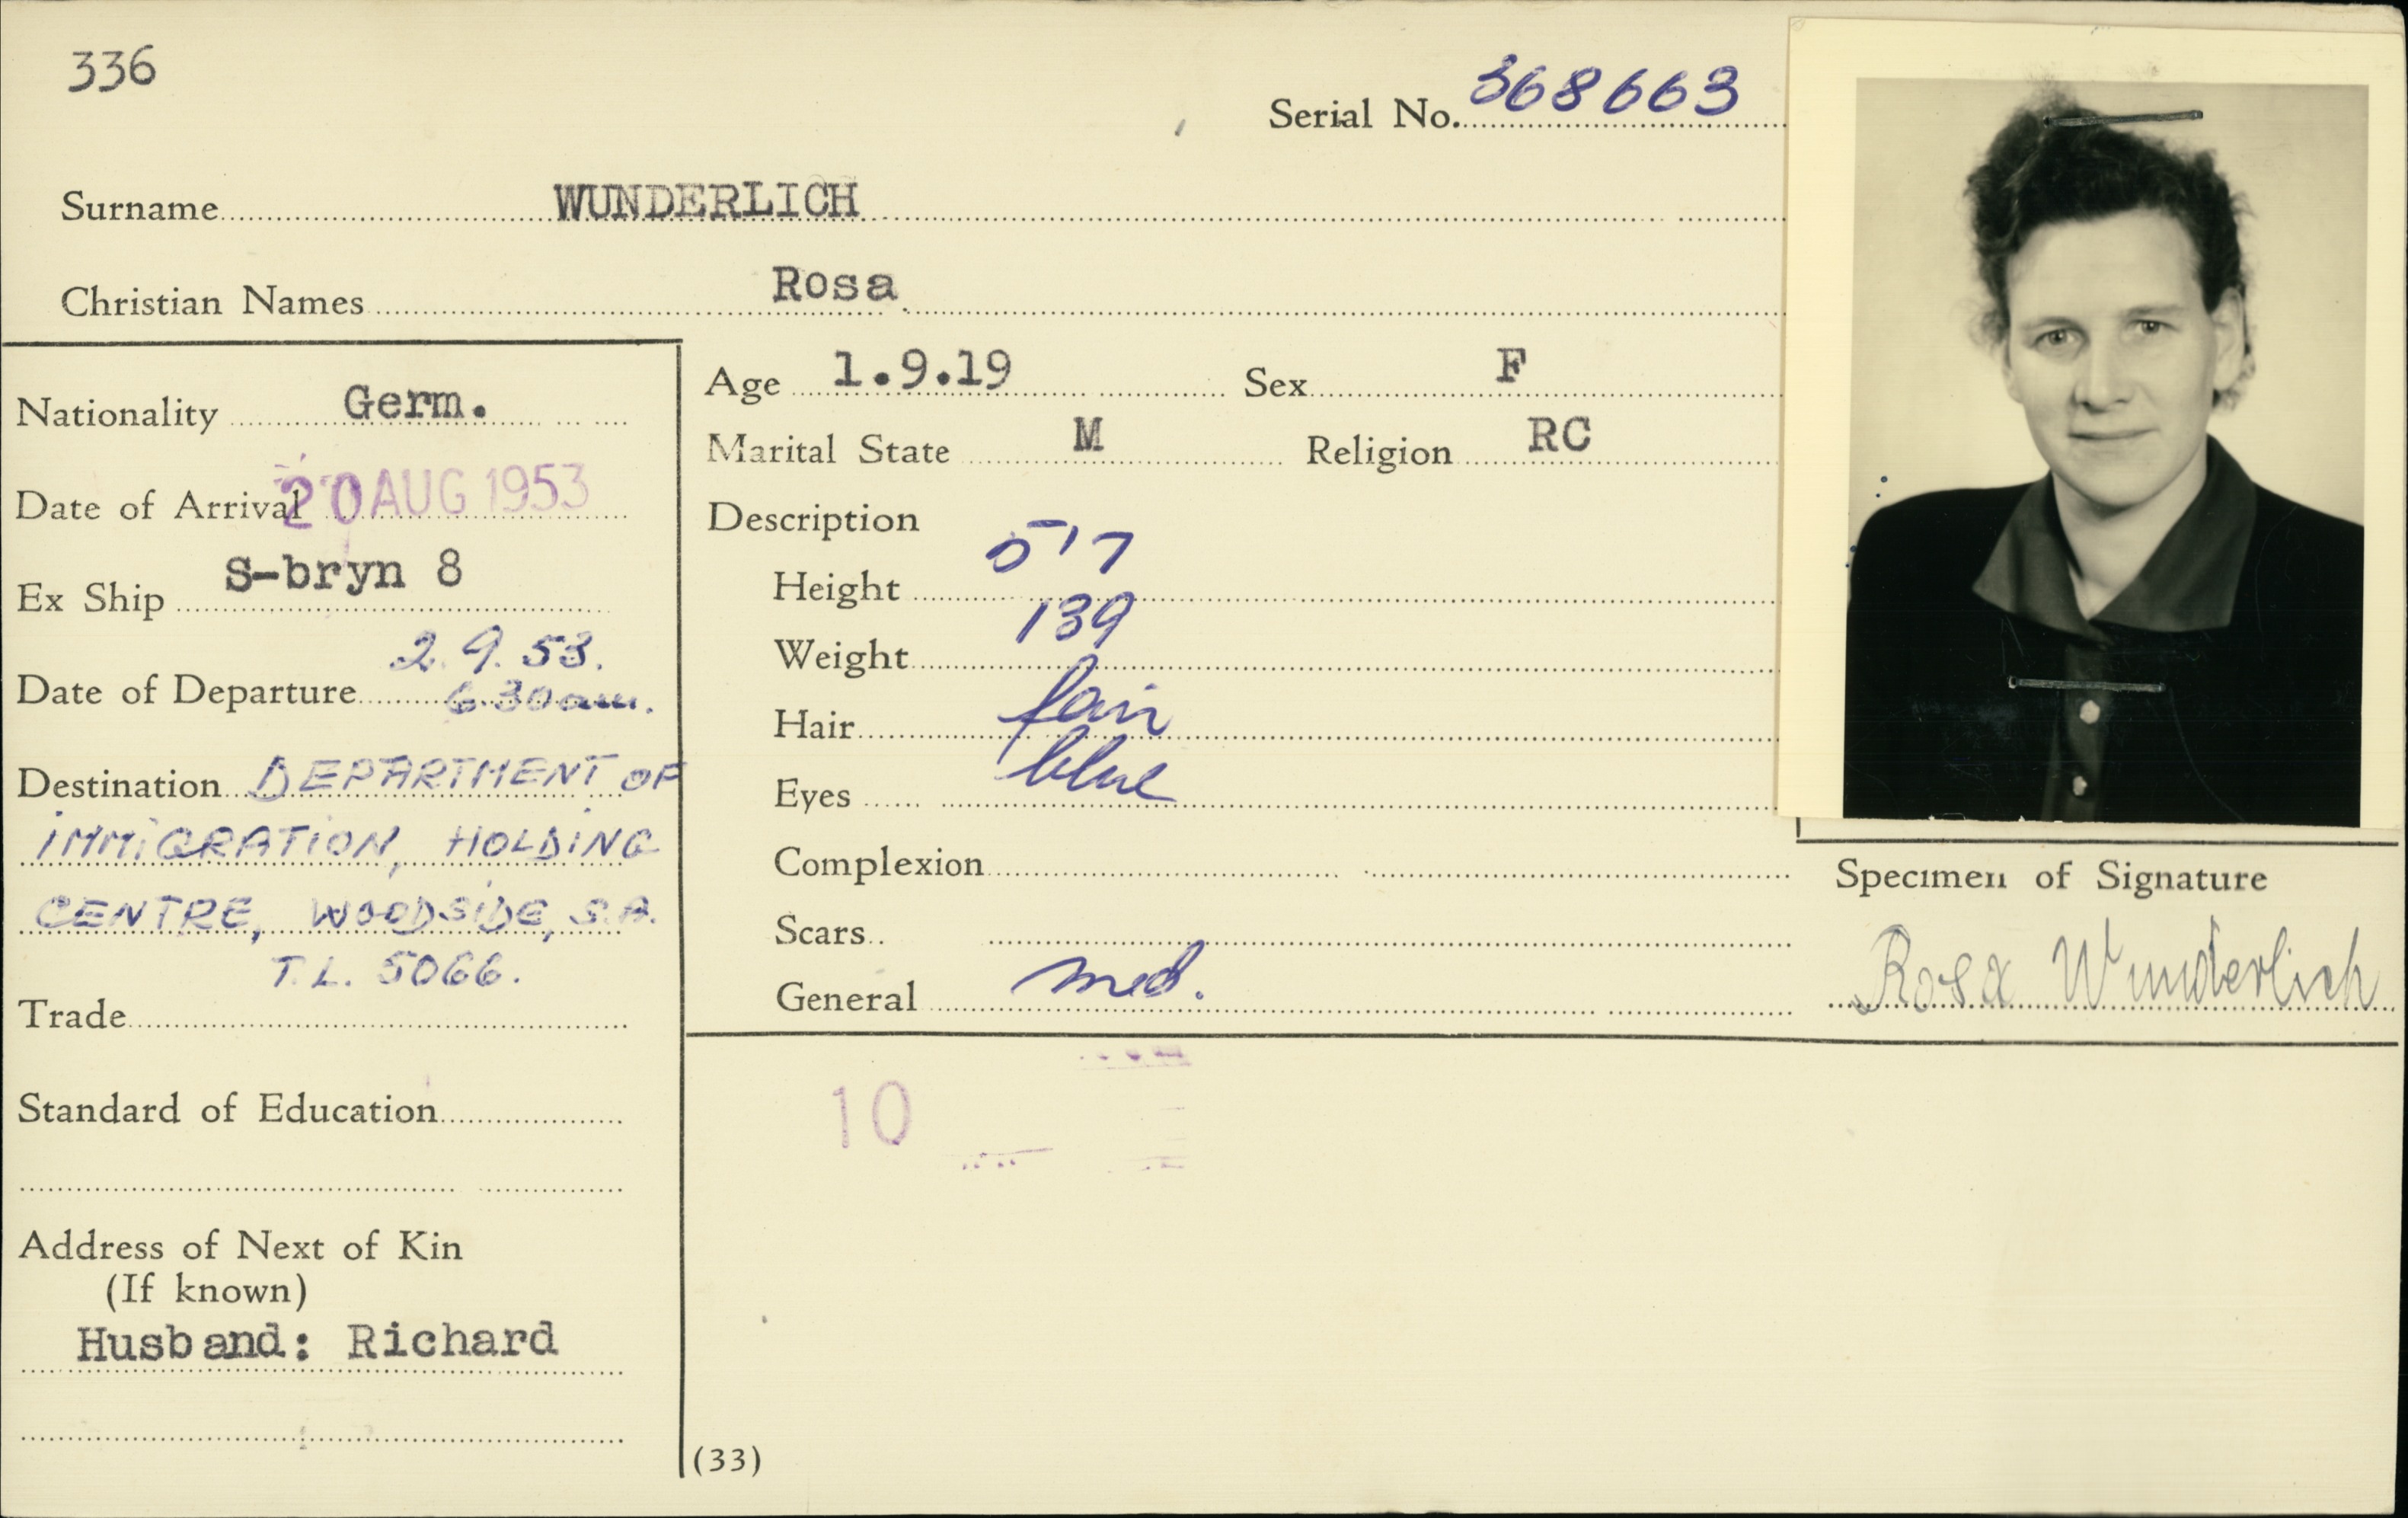 336
Serial No. 368663
Surname WUNDERLICH
Christian Names Rosa
Nationality Germ.
Date of Arrival 20 AUG 1953
Ex Ship S-bryn 8
Date of Departure 2.9.53.
6 30am.
Destination DEPARTMENT OF
IMMIGRATION, HOLDING
CENTRE, WOODSIDE, S.A.
T.L. 5066.
Trade
Standard of Education
Address of Next of Kin
(If known)
Husband: Richard
Age 1.9.19 Sex F
Marital State M Religion RC
Description
Height 5'7
Weight 139
Hair fair
Eyes blue
Complexion
Scars
General med.
10
(33)
Specimen of Signature
Rosa Wunderlich